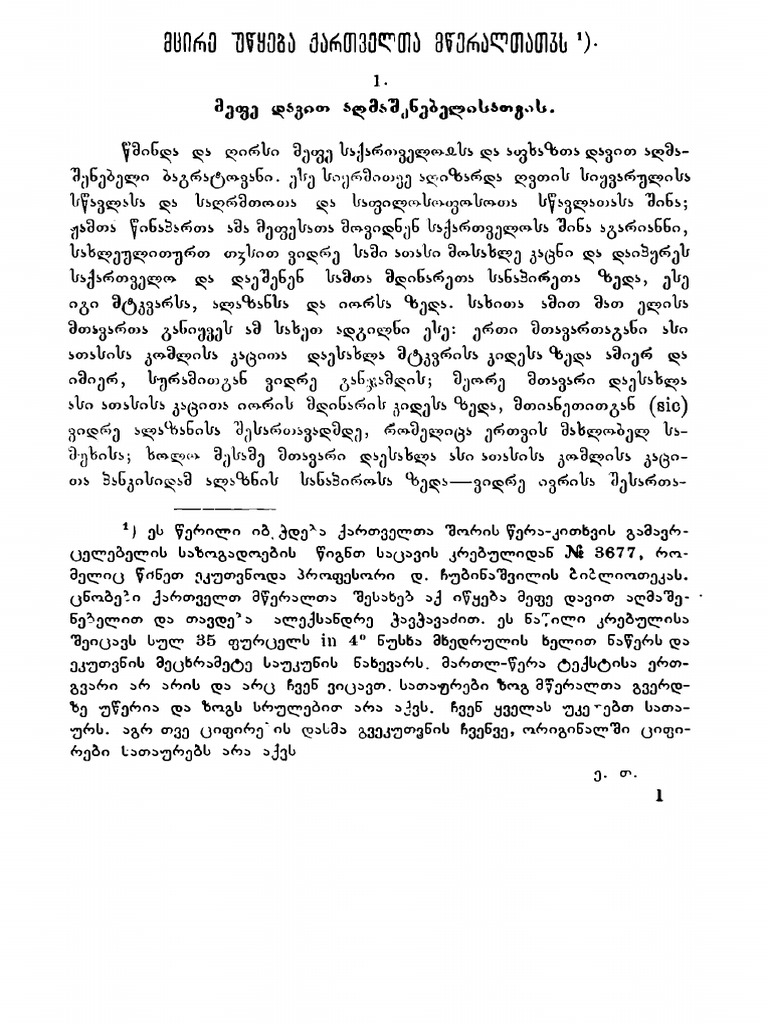 მცირე უწყება ქართველთა მწერალთათჳს ¹).
1.
მეფე დავით აღმაშენებელისათვის.
წმინდა და ღირსი მეფე საქართველოჲსა და აფხაზთა დავით აღმა-
შენებელი ბაგრატოვანი. ესე სიყრმითვე აღიზარდა ღვთის სიყვარულისა
სწავლასა და საღრმთოთა და საფილოსოფოსოთა სწავლათასა შინა;
ჟამთა წინაპართა ამა მეფესათა მოვიდნენ საქართველოსა შინა აგარიანნი,
სახლეულითურთ თჳსით ვიდრე სამი ათასი მოსახლე კაცნი და დაიპყრეს
საქართველო და დაეშენენ სამთა მდინარეთა სანაპირეთა ზედა, ესე
იგი მტკვარსა, ალაზანსა და იორსა ზედა. სახითა ამით მათ ელისა
მთავართა განიყვეს ამ სახეთ ადგილნი ესე: ერთი მთავართაგანი ასი
ათასისა კომლისა კაცითა დაესახლა მტკვრისა კიდესა ზედა ამიერ და
იმიერ, სურამითგან ვიდრე განჯამდის; მეორე მთავარი დაესახლა
ასი ათასისა კაცითა იორის მდინარის კიდესა ზედა, მთიანეთითგან (sic)
ვიდრე ალაზანისა შესართავადმდე, რომელიცა ერთვის მახლობელ სა-
მუხისა; ხოლო მესამე მთავარი დაესახლა ასი ათასისა კომლისა კაცი-
თა პანკისიდამ ალაზნის სანაპიროსა ზედა—ვიდრე ივრისა შესართა-
¹) ეს წერილი იბეჭდება ქართველთა შორის წერა-კითხვის გამავრ-
ცელებელის საზოგადოების წიგნთ საცავის კრებულიდან № 3677, რო-
მელიც წინეთ ეკუთვნოდა პროფესორი დ. ჩუბინაშვილის ბიბლიოთეკას.
ცნობები ქართველთ მწერალთა შესახებ აქ იწყება მეფე დავით აღმაშე-
ნებელით და თავდება ალექსანდრე ჭავჭავაძით. ეს ნაწილი კრებულისა
შეიცავს სულ 35 ფურცელს in 4⁰ ნუსხა მხედრულის ხელით ნაწერს და
ეკუთვნის მეცხრამეტე საუკუნის ნახევარს. მართლ-წერა ტექსტისა ერთ-
გვარი არ არის და არც ჩვენ ვიცავთ. სათაურები ზოგ მწერალთა გვერდ-
ზე უწერია და ზოგს სრულებით არა აქვს. ჩვენ ყველას უკეთებთ სათა-
ურს. აგრეთვე ციფირების დასმა გვეკუთვნის ჩვენვე, ორიგინალში ციფი-
რები სათაურებს არა აქვს
ე. თ.
1